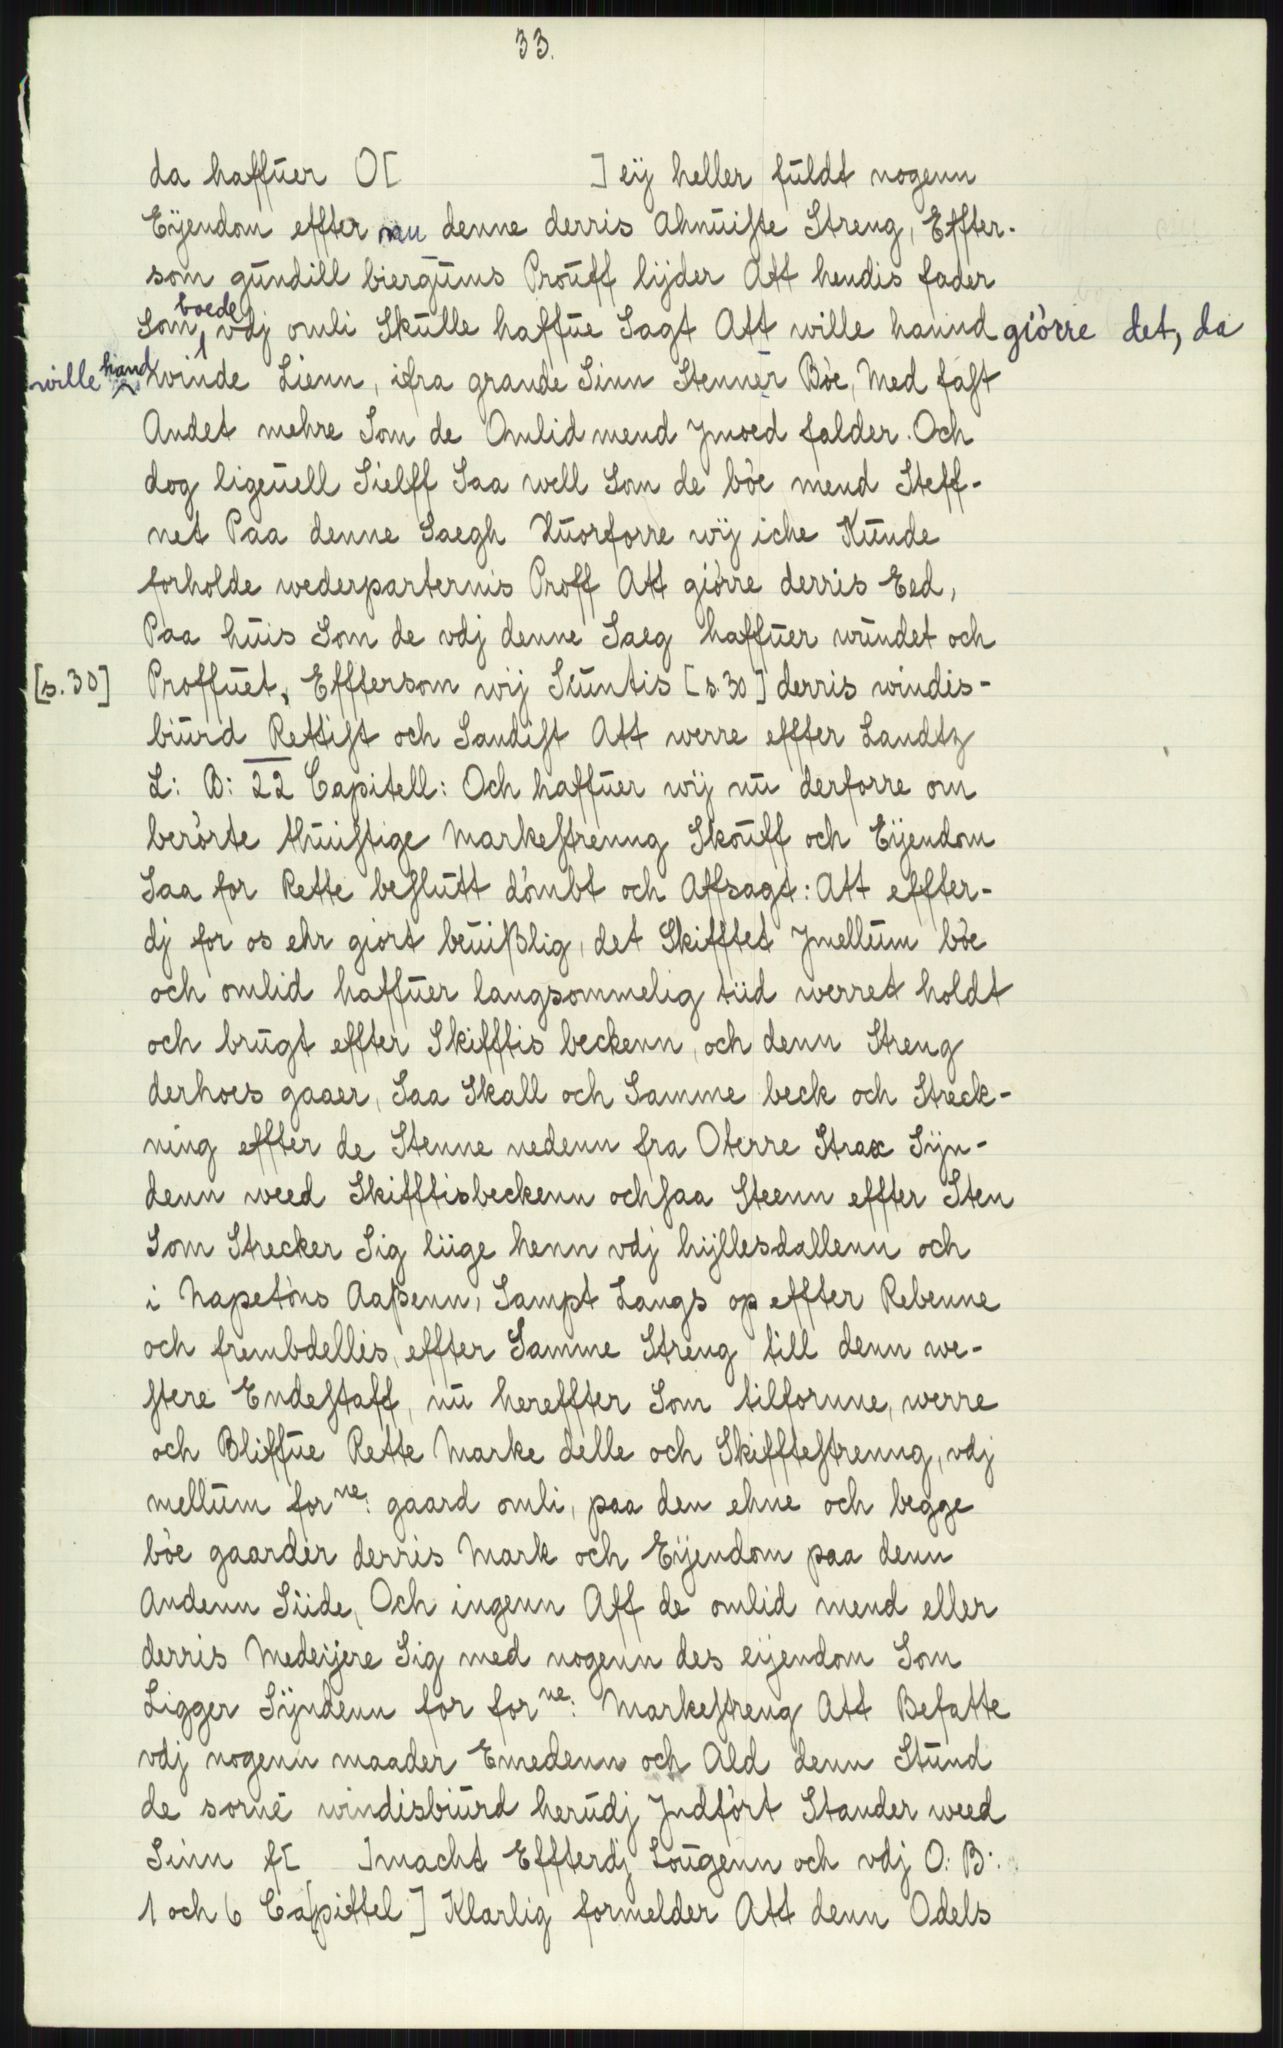 33.
da haffuer O[ ] eÿ heller fuldt nogenn
Eÿendom effter nu denne derris Ahnuiste Streng, Effter-
som gundill biergums Prouff lijder Att hendis fader
Som boede vdj omli Skulle haffue Sagt Att wille hannd giòrre det, da
wille hand Kvinde Lienn, ifra grande Sinn Stenner Bòe, Med fast
Andet mehre Som de Omlid mend Jmoed falder. Och
dog ligeuell Sielff Saa well Som de bòe mend Steff-
net Paa denne Saegh Huorforre wÿ iche Kunde
forholde wederparternis Proff Att giòrre derris Eed,
Paa huis Som de vdj denne Saeg haffuer wundet och
[s.30] Proffuet, Efftersom wij Siuntis [s.30] derris windis-
biurd Rettist och Sandist Att werre effter Landtz
L: B: 22 Capitell: Och haffuer wÿ nu derforre om
beròrte thuistige Markestrenng Skouff och Eÿendom
Saa for Rette beslutt dòmbt och Affsagt: Att effter-
dj for os ehr giort beuißlig, det Skifftet Jmellum bòe
och omlid haffuer langsommelig tiid werret holdt
och brugt effter Skifftis beckenn, och denn Streng
derhoes gaaer, Saa Skall och Samme beck och Streck-
ning effter de Stenne nedenn fra Oterre Strax Sÿn-
denn weed Skifftisbeckenn ochsaa Steenn effter Sten
Som Strecker Sig liige henn vdj hÿllesdallenn och
i Napetòns Aaßenn, Sampt Langs op effter Rebenne
och frembdelles, effter Samme Streng till denn we-
stere Endestaff, nu hereffter Som tilfornne, werre
och Bliffue Rette Marke delle och Skifftestrenng, vdj
mellum for ne: gaard omli, paa den ehne och begge
bòe gaarder derris Mark och Eÿendom paa denn
Andenn Siide, Och ingenn Aff de omlid mend eller
derris Medeijere Sig med nogenn des eijendom Som
Ligger Sÿndenn for for ne: Markestreng Att Befatte
vdj nogenn maader Emedenn och Ald denn Stund
de sorne windisbiurd herudj Jndfòrt Stander weed
Sinn f[ ]macht Effterdj Lougenn och vdj O: B:
1 och 6 Ca[pittel] Klarlig formelder Att denn Odels